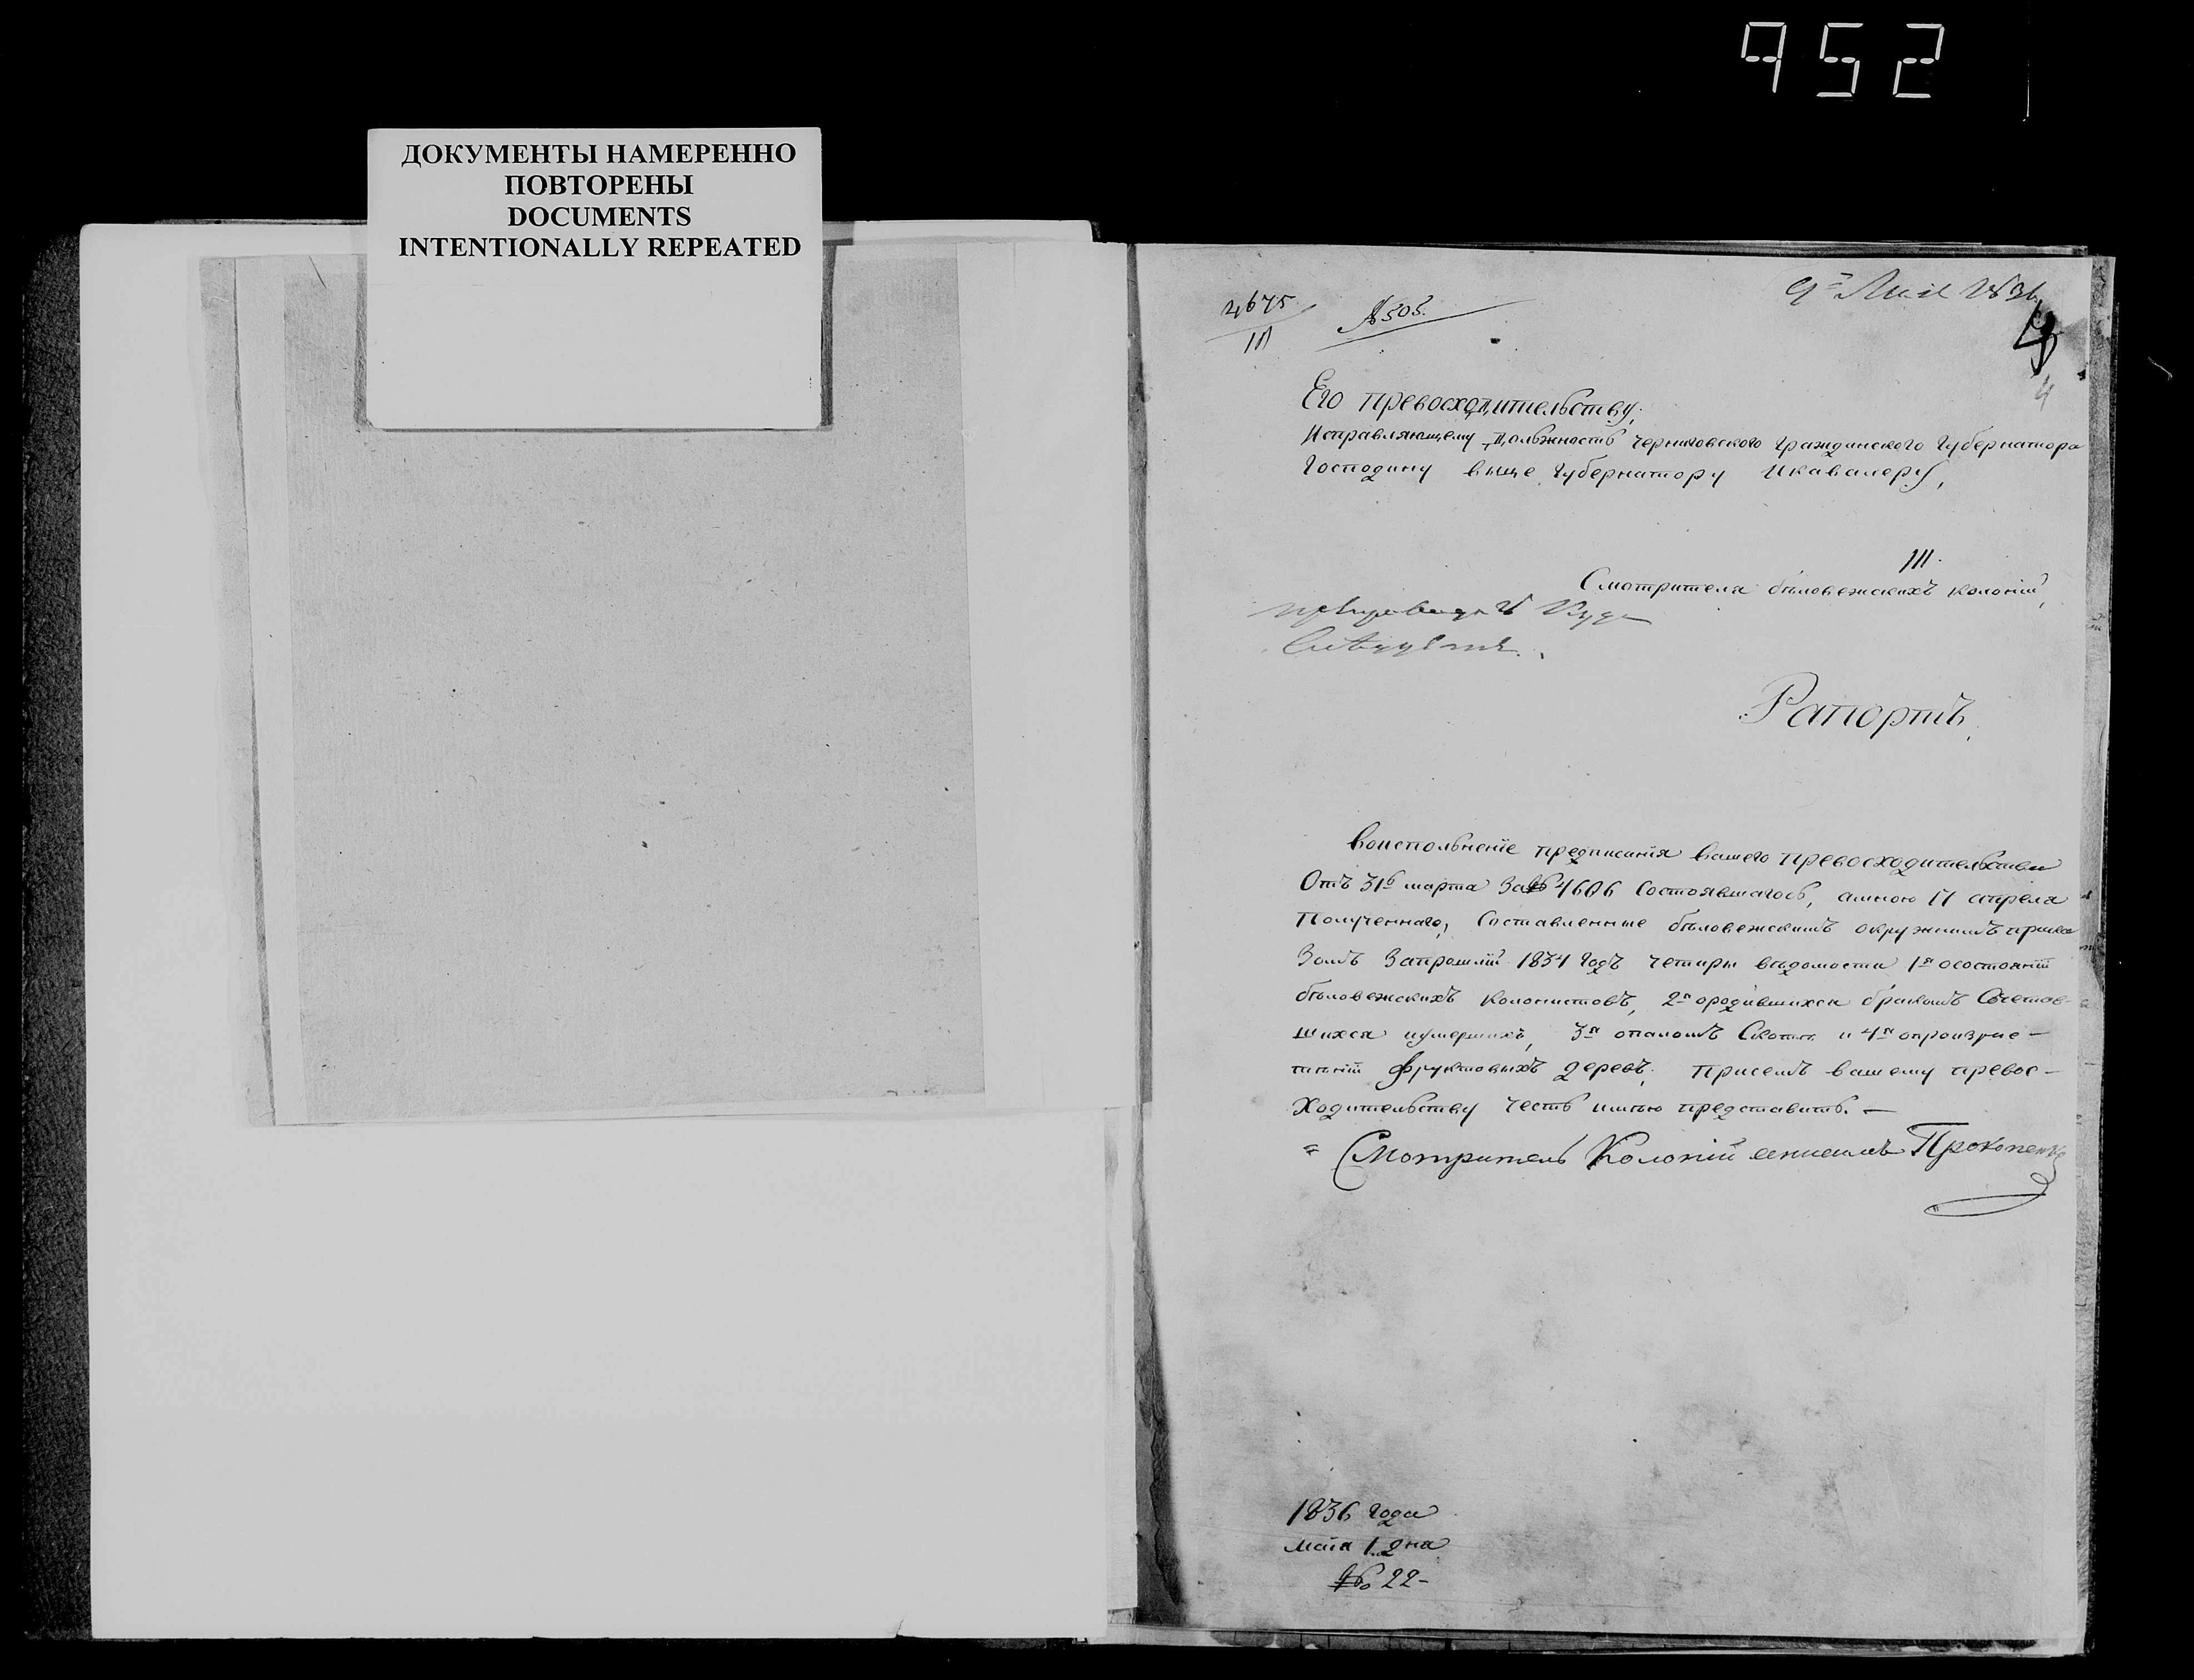 952
ДОКУМЕНТЫ НАМЕРЕННО
ПОВТОРЕНЫ
DOCUMENTS
INTENTIONALLY REPEATED
9 Мая 1836
№ 505.
4
Его превосходительству,
Исправляющему должность Черниговского Гражданского Губернатора
Господину вице Губернатору и кавалеру,
III.
Смотрителя беловежскихъ колоній,
Рапортъ
Воисполненіе предписанія вашего превосходительства
Отъ 31 марта За № 4606 Состоявшагося, амною 17 апреля
Полученнаго, Составленные беловежскимъ окружнымъ прика
Зомъ Запрошлій 1834 Годъ четыри ведомости 1я осостояніи
беловежскихъ колонистовъ, 2я ородившихся бракомъ Сочетав-
шихся иумершихъ, 3я опаломъ Скоте и 4я опроизрас-
теніи фруктовыхъ деревъ, присемъ вашему превос-
ходительству честь имею представить. —
Смотритель Колоній Прокопенко
1836 года
маія 1 дня
№ 22-